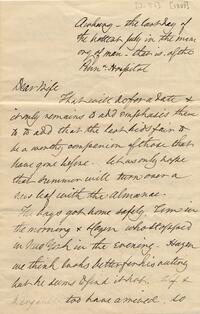 [2.51] [1868]
the last day of
the hottest July in the mem
ory of man - that is - of the
Penn. Hospital
Dear Wife
That will do for a date &
it only remains to add emphases then
to add that the last bids fair to
be a worthy companion of those that
have gone before - Let us only hope
that Summer will turn over a
new leaf with the almanac.
The boys got home safely. Tim in
the morning & who stopped
in New York in the evening - 
we think looks better for his outing
but he seems to find it hot.
too have arrived. so